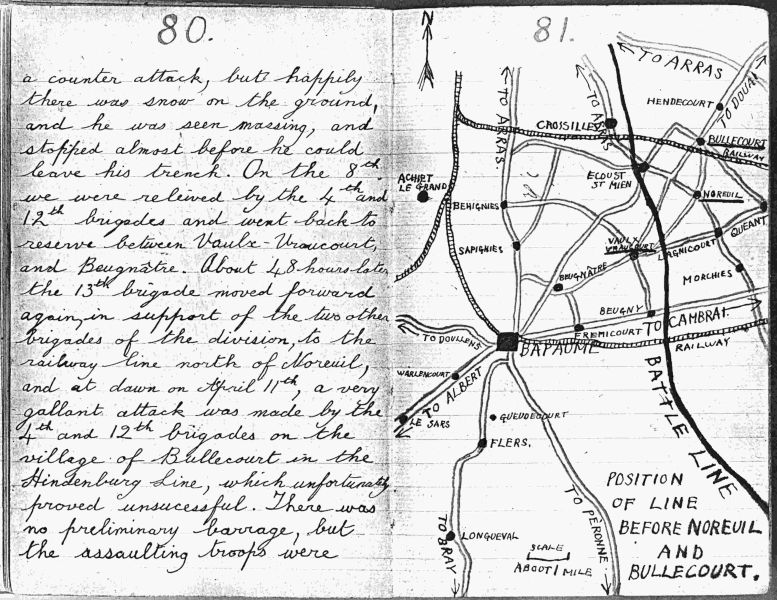 80.
a counter attack, but happily
there was snow on the ground,
and he was seen massing, and
stopped almost before he could
leave his trench. On the 8th
we were releived by the 4th and
12th brigades and went back to
reserve between Vaulx-Vraucourt,
and Beugnâtre. About 48 hours later
the 13th brigade moved forward
again, in support of the two other
brigades of the division, to the
railway line north of Noreuil,
and at dawn on April 11th, a very
gallant attack was made by the
4th and 12th brigades on the
village of Bullecourt in the
Hindenburg Line, which unfortunately
proved unsucessful. There was
no preliminary barrage, but
the assaulting troops were
81.
N
TO ARRAS
TO DOUAI
HENDECOURT
TO ARRAS.
TO ARRAS
CROISILLES
BULLECOURT
RAILWAY
ECOUST
ST MIEN
ACHIET
LE GRAND
NOREUIL
BEHIGNIES
QUEANT
VAULX
VRAUCOURT
LAGNICOURT
SAPIGNIES
BEUGNÂTRE
MORCHIES
BEUGNY
TO CAMBRAI.
FREMICOURT
TO DOULLENS
BAPAUME
RAILWAY
WARLENCOURT
TO ALBERT
BATTLE LINE
LE SARS
GUEUDECOURT
FLERS.
TO PERONNE
LONGUEVAL
TO BRAY
SCALE
ABOUT 1 MILE
POSITION
OF LINE
BEFORE NOREUIL
AND
BULLECOURT.